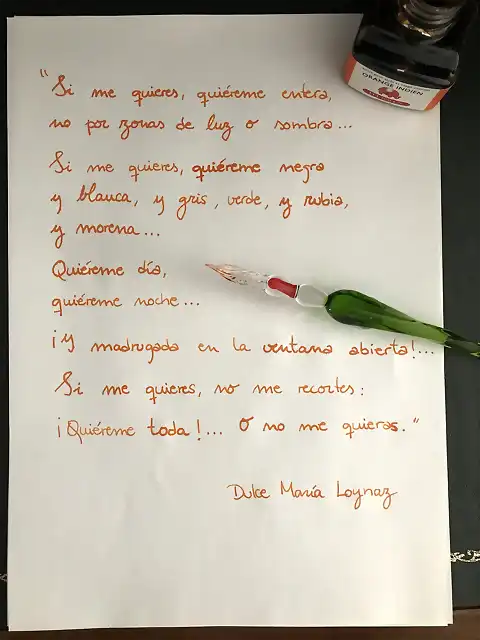 ORANGE INDIEN
"Si me quieres, quiéreme entera,
no por zonas de luz o sombra...
Si me quieres, quiéreme negra
y blanca, y gris, verde, y rubia,
y morena...
Quiéreme día,
quiéreme noche...
¡Y madrugada en la ventana abierta!...
Si me quieres, no me recortes:
¡Quiéreme toda!... O no me quieras."
Dulce María Loynaz